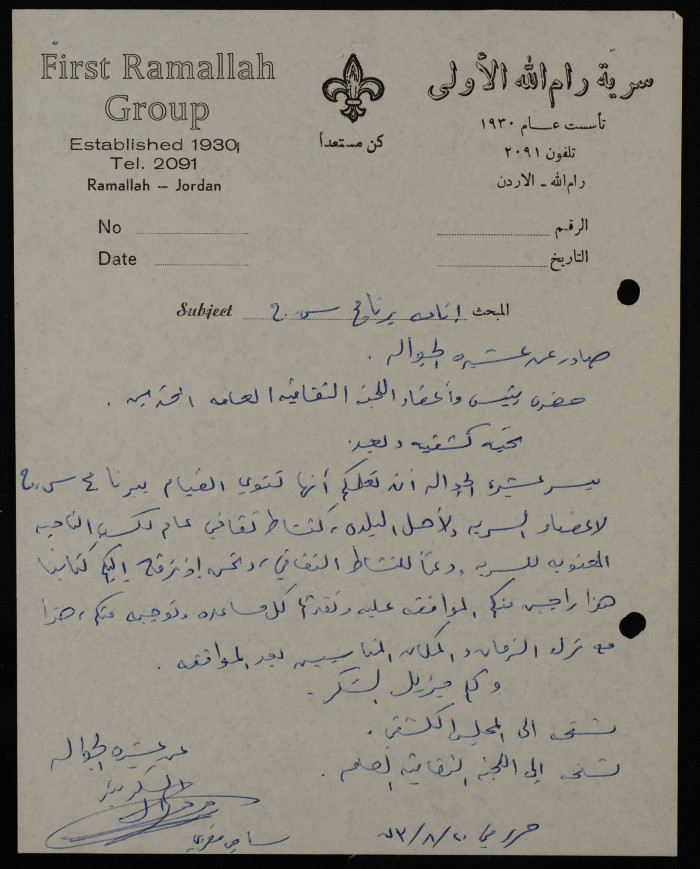 First Ramallah
Group
Established 1930
Tel. 2091
Ramallah – Jordan
كن مستعداً
سرية رام الله الأولى
تأسست عـام ١٩٣٠
تلفون ٢٠٩١
رام الله ـ الاردن
No
Date
الرقم
التاريخ
Subject برنامج س.ج المبحث
صادر عن عشيرة الجوالة .
حضرة رئيس وأعضاء اللجنة الثقافية العامة المحترمين .
تحية كشفية وبعد
يسر عشيرة الجوالة أن تعلمكم أنها تنوي القيام ببرنامج س.ج
لاعضاء السرية ولأهل البلدة ، كنشاط ثقافي عام الناحية
المعنوية للسرية ودعماً للنشاط الثقافي ، ونحن إذ نرفع إليكم كتابنا
هذا راجين منكم الموافقة عليه كل مساعدة وتوجيه منكم ، هذا
مع ترك الزمان والمكان المناسبين بعد الموافقة .
ولكم جزيل الشكر .
نسخة الى المجلس الكشفي .
نسخة إلى اللجنة الثقافية العامة .
عن عشيرة الجوالة
السكرتير
حرر في ٢٠ / ٨ / ٧٣